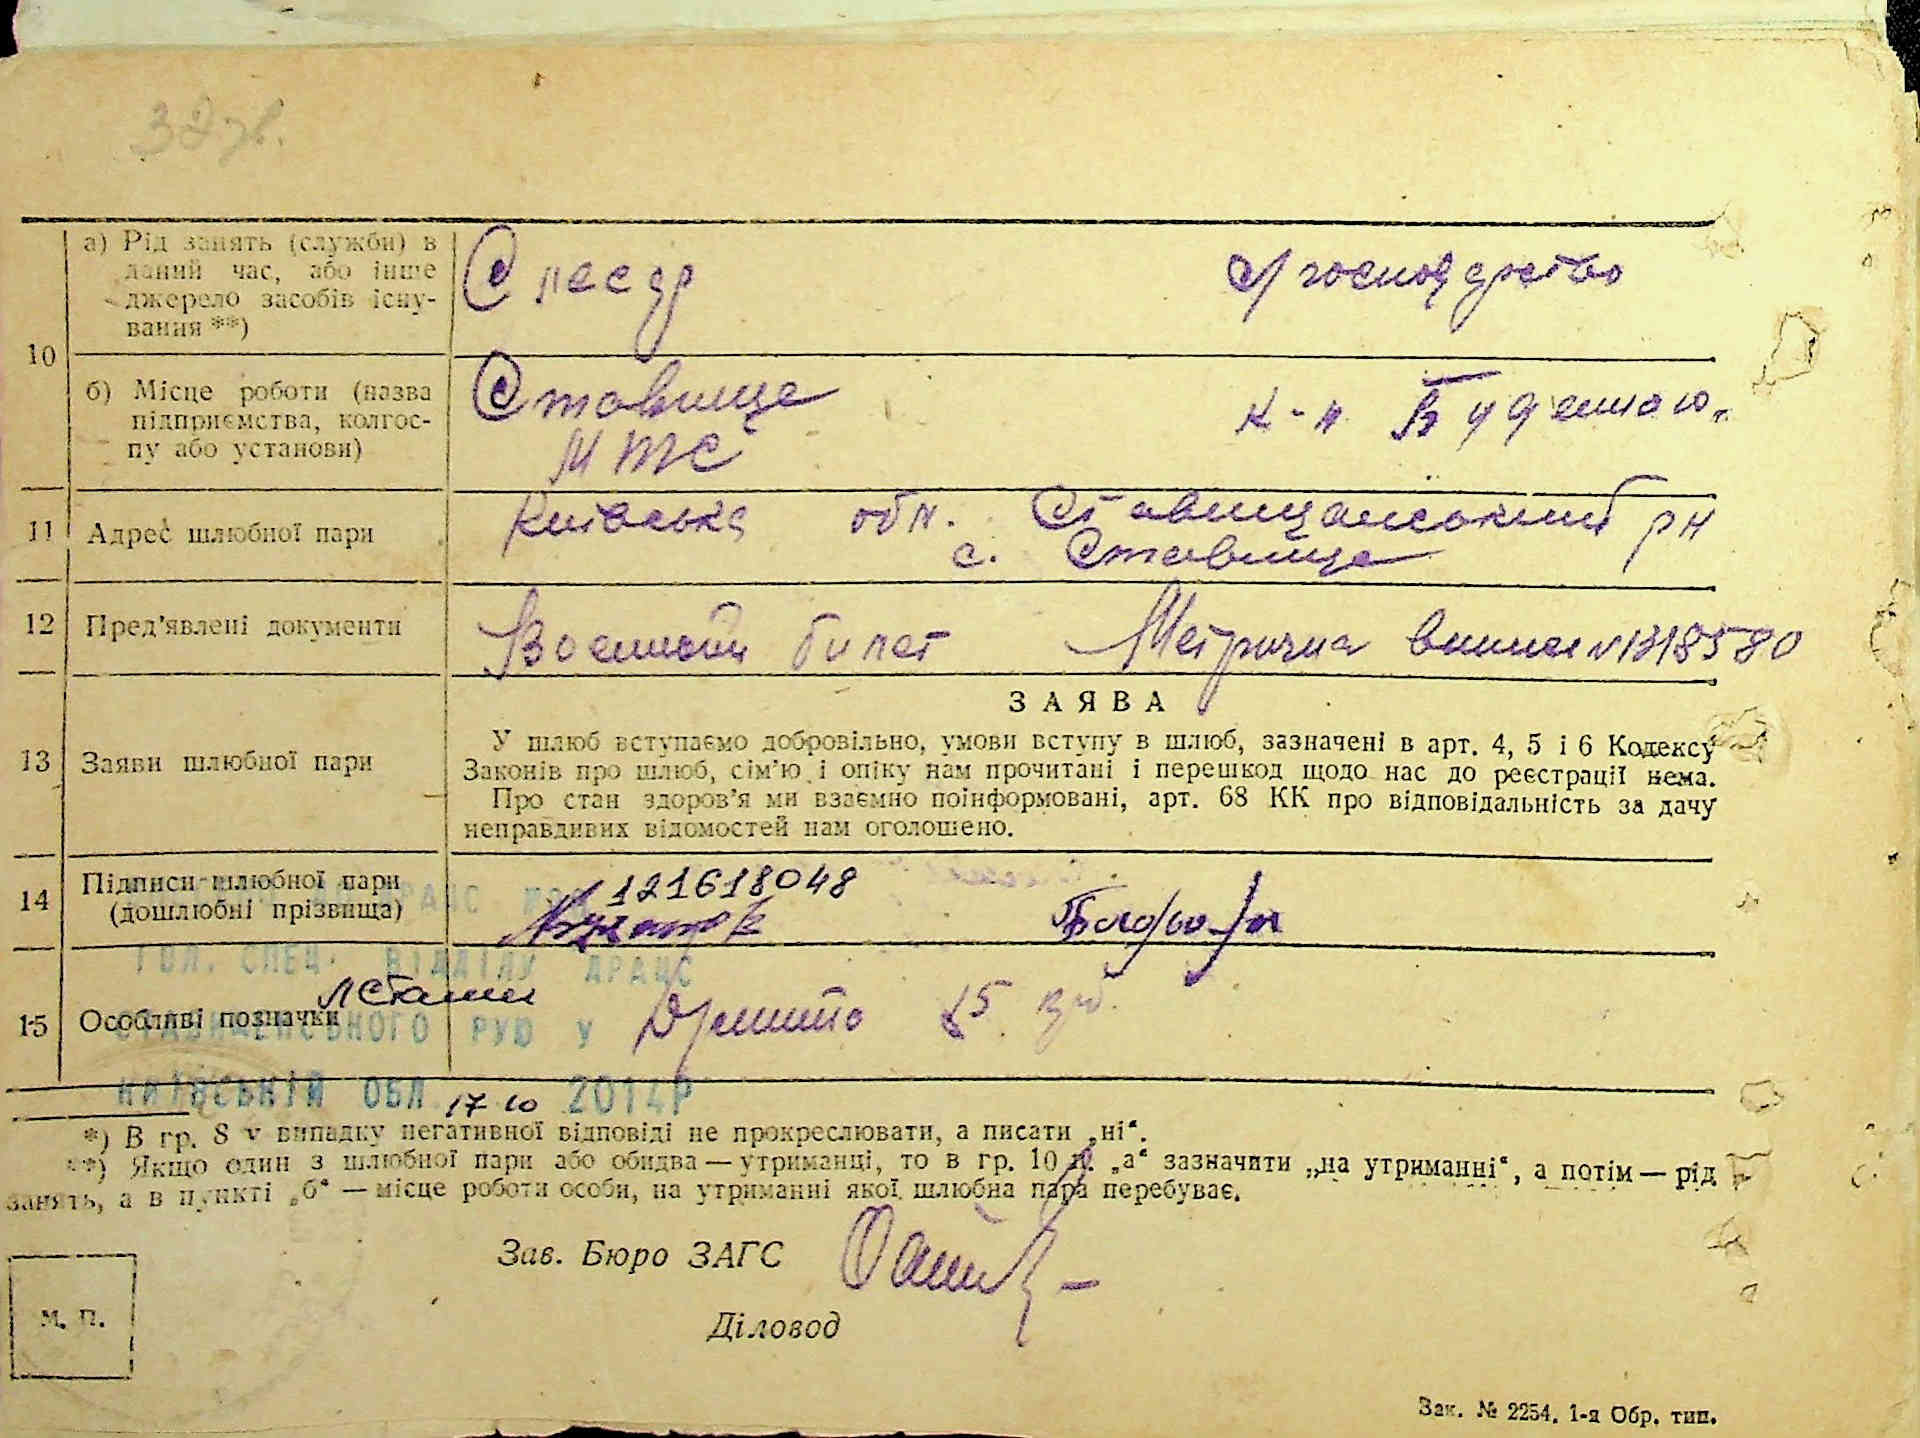 32 зв.
10
а) Рід занять (служби) в даний час, або інше джерело засобів існування **)
Слесар
с/господарство
б) Місце роботи (назва підприємства, колгоспу або установи)
Ставище
МТС
к-п Буденного
11 Адрес шлюбної пари
Київська обл. Ставищанський р-н
с. Ставище
12 Пред'явлені документи
Военний билет Метрична випис №1318580
ЗАЯВА
13 Заяви шлюбної пари
У шлюб вступаємо добровільно, умови вступу в шлюб, зазначені в арт. 4, 5 і 6 Кодексу
Законів про шлюб, сім'ю і опіку нам прочитані і перешкод щодо нас до реєстрації нема.
Про стан здоров'я ми взаємно поінформовані, арт. 68 КК про відповідальність за дачу
неправдивих відомостей нам оголошено.
14 Підписи шлюбної пари
(дошлюбні прізвища)
121618048
ГОЛ. СПЕЦ. ВІДДІЛУ ДРАЦС
15 Особливі позначки
СТАВИЩЕНСЬКОГО РУЮ У
15 крб.
КИЇВСЬКІЙ ОБЛ. 17 10 2014Р
*) В гр. 8 у випадку негативної відповіді не прокреслювати, а писати „ні“.
**) Якщо один з шлюбної пари або обидва — утриманці, то в гр. 10 п. „а“ зазначити „на утриманні“, а потім — рід
занять, а в пункті „б“ — місце роботи особи, на утриманні якої шлюбна пара перебуває.
Зав. Бюро ЗАГС
М. П.
Діловод
Зак. № 2254. 1-я Обр. тип.